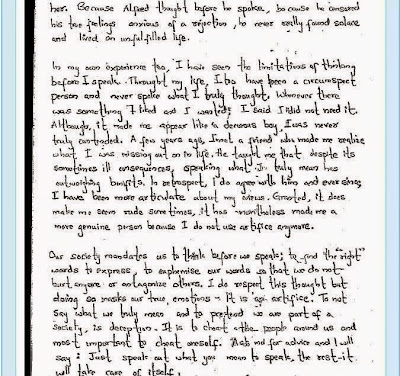 her. Because Alfred thought before he spoke, because he censored
his true feelings anxious of a rejection, he never really found solace
and lived an unfulfilled life.
In my own experience too, I have seen the limitations of thinking
before I speak. Throught my life, I too have been a circumspect
person and never spoke what I truly thought. Whenever there
was something I liked and I wanted; I said I did not need it.
Although, it made me appear like a boy, I was never
truly contended. A few years ago, I met a friend who made me realize
what I was missing out on in life. He taught me that despite its
sometimes ill consequences, speaking what I truly mean has
outweighing benefits. In retrospect, I do agree with him and ever since
I have been more articulate about my views. Granted, it does
make me seem rude sometimes, it has nonetheless made me a
more genuine person because I do not use artifice anymore.
Our society mandates us to think before we speak; to find the "right"
words to express, to euphemise our words so that we do not
hurt anyone or antagonize others. I do respect this thought but
doing so masks our true emotions - It is an artifice. To not
say what we truly mean and to pretend we are part of a
society, is deception. It is to cheat the people around us and
most important to cheat oneself. Ask me for advice and I will
say: Just speak out what you mean to speak, the rest - it
will take care of itself.